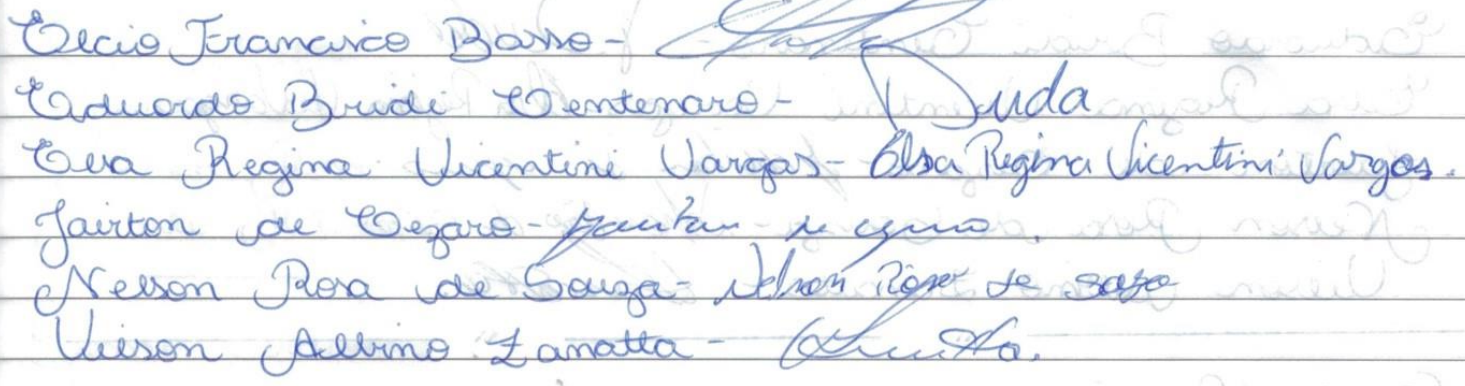 Elcio Francisco Basso -
Eduardo Bridi Centenaro - Duda
Elsa Regina Vicentini Vargas - Elsa Regina Vicentini Vargas.
Jairton de Cezaro - Jairton de Cezaro.
Nelson Rosa de Souza - Nelson Rosa de Soza
Vilson Albino Zanatta -